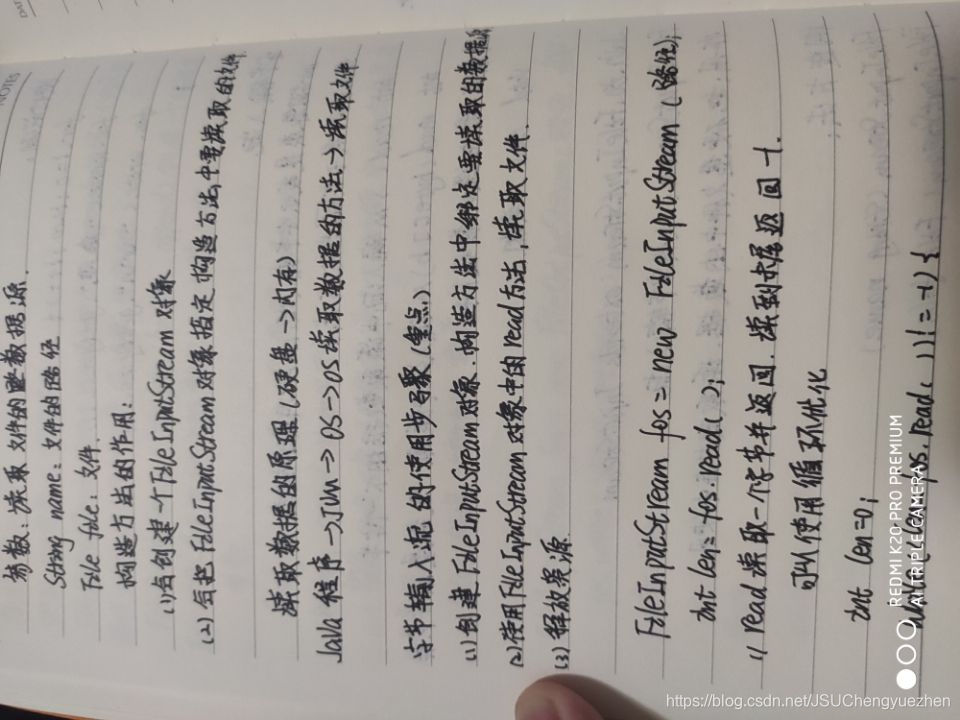 参数：读取文件的数据源.
String name：文件的路径
File file：文件
构造方法的作用：
(1)会创建一个FileInputStream对象
(2)会把FileInputStream对象指定构造方法中要读取的文件
读取数据的原理(硬盘→内存)
Java程序→JVM→OS→OS读取数据的方法→读取文件
字节输入流的使用步骤(重点)
(1)创建FileInputStream对象.构造方法中绑定要读取的数据源
(2)使用FileInputStream对象中的read方法,读取文件.
(3)释放资源
FileInputStream fos = new FileInputStream(路径);
int len = fos.read();
// read读取一个字节并返回.读到末尾返回-1.
可以使用循环优化
int len=0;
fos.read())!=-1){
REDMI K20 PRO PREMIUM
AI TRIPLE CAMERA
https://blog.csdn.net/JSUChengyuezhen